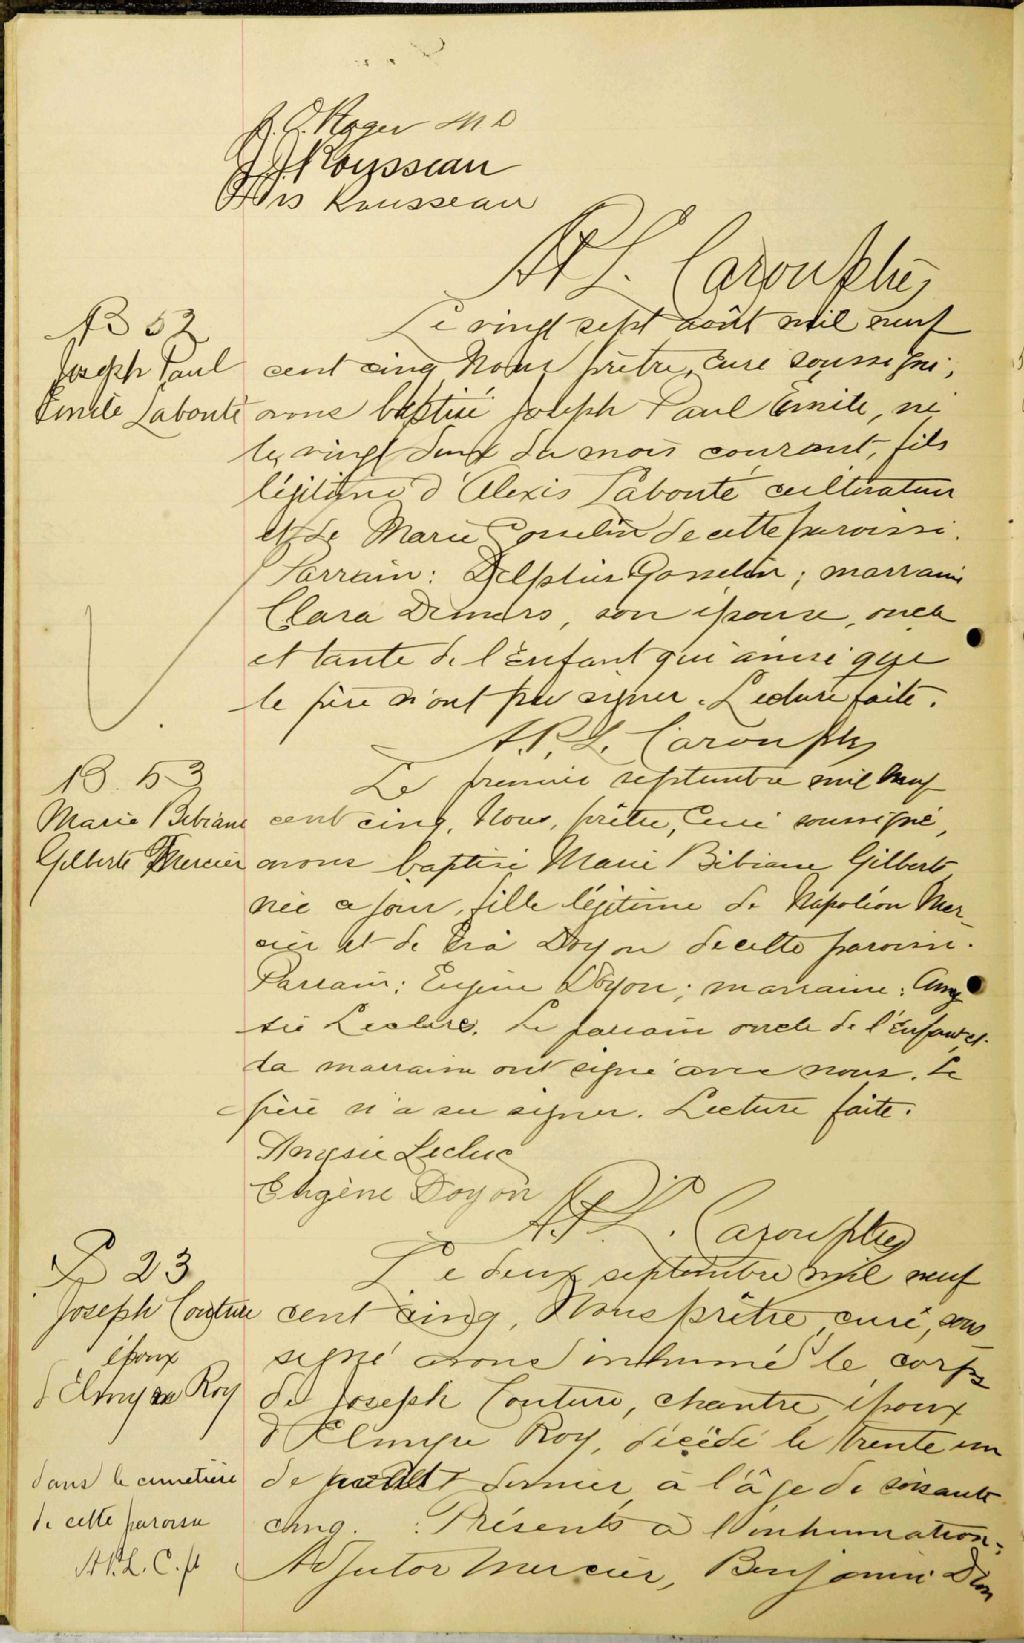 J. O. Roger M D
J J Rousseau
Rousseau
A P L. Caron ptre,
B 52
Joseph Paul
Emile Labonté
Le vingt sept août mil neuf
cent cinq Nous prêtre, curé soussigné,
avons baptisé Joseph Paul Emile, né
le vingt deux du mois courant, fils
légitime d'Alexis Labonté cultivateur
et de Marie Gosselin de cette paroisse.
Parrain: Delphis Gosselin; marraine
Clara Demers, son épouse, oncle
et tante de l'Enfant qui ainsi que
le père n'ont pu signer. Lecture faite.
A. P. L. Caron ptre,
B. 53
Marie Bibiane
Gilberte Mercier
Le premier septembre mil neuf
cent cinq, Nous, prêtre, Curé soussigné,
avons baptisé Marie Bibiane Gilberte,
née ce jour, fille légitime de Napoléon Mer-
cier et de Doyon de cette paroisse.
Parrain: Eugène Doyon; marraine: Any
sie Leclerc. Le parrain oncle de l'Enfant et
la marraine ont signé avec nous. Le
père n'a su signer. Lecture faite.
Anysie Leclerc
Eugène Doyon
A. P. L. Caron ptre,
S 23
Joseph Couture
époux
d'Elmyre Roy
dans le cimetière
de cette paroisse
A. P. L. C. pt
Le deux septembre mil neuf
cent cinq, Nous prêtre, curé, sous
signé avons inhumé le corps
de Joseph Couture, chantre, époux
d'Elmyre Roy, décédé le trente un
de dernier, à l'âge de soisante
cinq. : Présents à l'inhumation:
Adjutor Mercier, Benjamin Dion